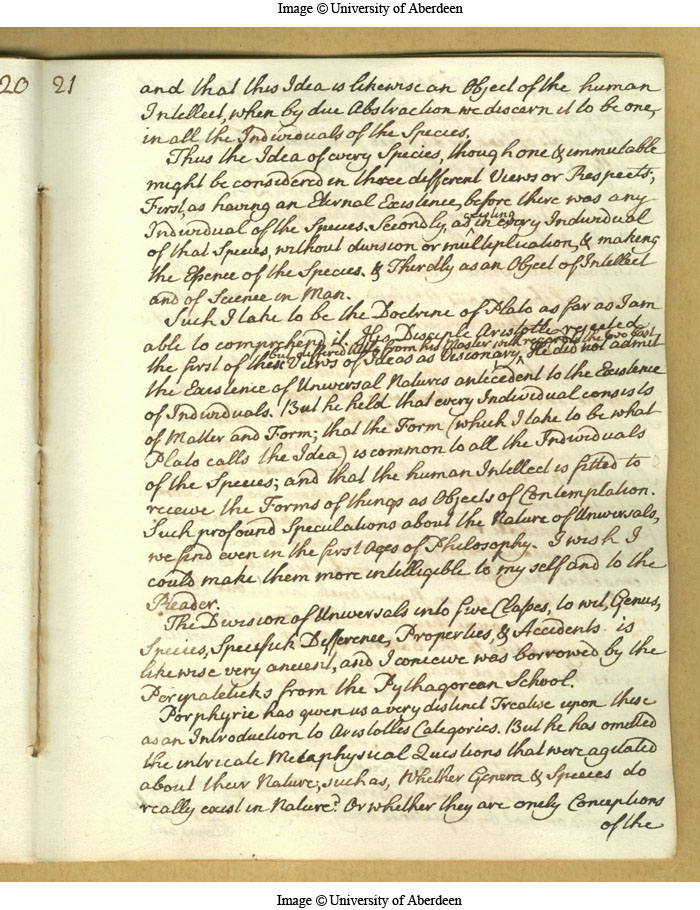 Image © University of Aberdeen
20 21
and that this Idea is likewise an Object of the human
Intellect, when by due Abstraction we discern it to be one,
in all the Individuals of the Species.
Thus the Idea of every Species, though one & immutable
might be considered in three different Views or Respects;
First, as having an Eternal Existence, before there was any
existing
Individual of the Species. Secondly, as in every Individual
of that Species, without division or multiplication, & making
the Essence of the Species. & Thirdly as an Object of Intellect
and of Science in Man.
Such I take to be the Doctrine of Plato as far as I am
able to comprehend it. His Disciple Aristotle rejected
but differed little from his Master with regard to the two last
the first of these Views of Ideas as Visionary, He did not admit
the Existence of Universal Natures antecedent to the Existence
of Individuals. But he held that every Individual consists
of Matter and Form; that the Form (which I take to be what
Plato calls the Idea) is common to all the Individuals
of the Species; and that the human Intellect is fitted to
receive the Forms of things as Objects of Contemplation.
Such profound Speculations about the Nature of Universals,
we find even in the first Ages of Philosophy. I wish I
could make them more intelligible to my self and to the
Reader.
The Division of Universals into five Classes, to wit, Genus,
Species, Specifick Difference, Properties, & Accidents is
likewise very ancient, and I conceive was borrowed by the
Peripateticks from the Pythagorean School.
Porphyrie has given us a very distinct Treatise upon these
as an Introduction to Aristotles Categories. But he has omitted
the intricate Metaphysical Questions that were agitated
about their Nature; such as, Whether Genera & Species do
really exist in Nature? Or whether they are onely Conceptions
of the
Image © University of Aberdeen